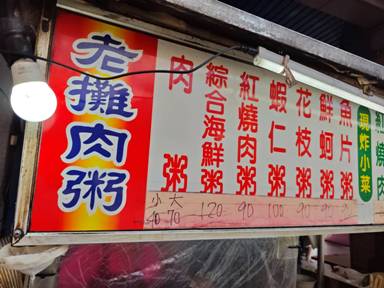 老攤肉粥
肉粥
小 大
40 70
綜合海鮮粥
120
紅燒肉粥
90
蝦仁粥
100
花枝粥
90
鮮蚵粥
90
魚片粥
現炸小菜
紅燒肉